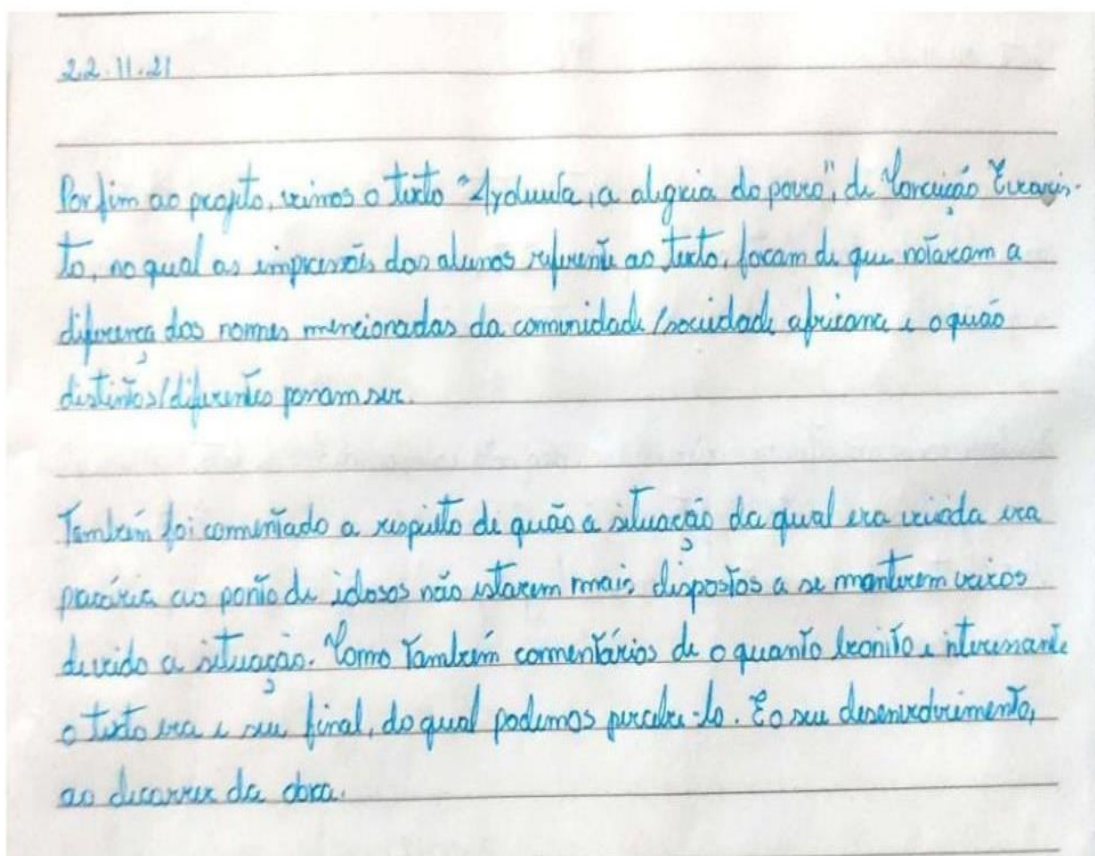 22.11.21
Por fim ao projeto, vimos o texto "Ayoluwa, a alegria do povo", de Conceição Evaris-
to, no qual as impressões dos alunos referente ao texto, foram de que notaram a
diferença dos nomes mencionadas da comunidade/sociedade africana e o quão
distintos/diferentes possam ser.
Também foi comentado a respeito de quão a situação da qual era vivida era
precária ao ponto de idosos não estarem mais dispostos a se manterem vivos
devido a situação. Como também comentários de o quanto bonito e interessante
o texto era e seu final, do qual podemos percebe-lo. E o seu desenvolvimento,
ao decorrer da obra.